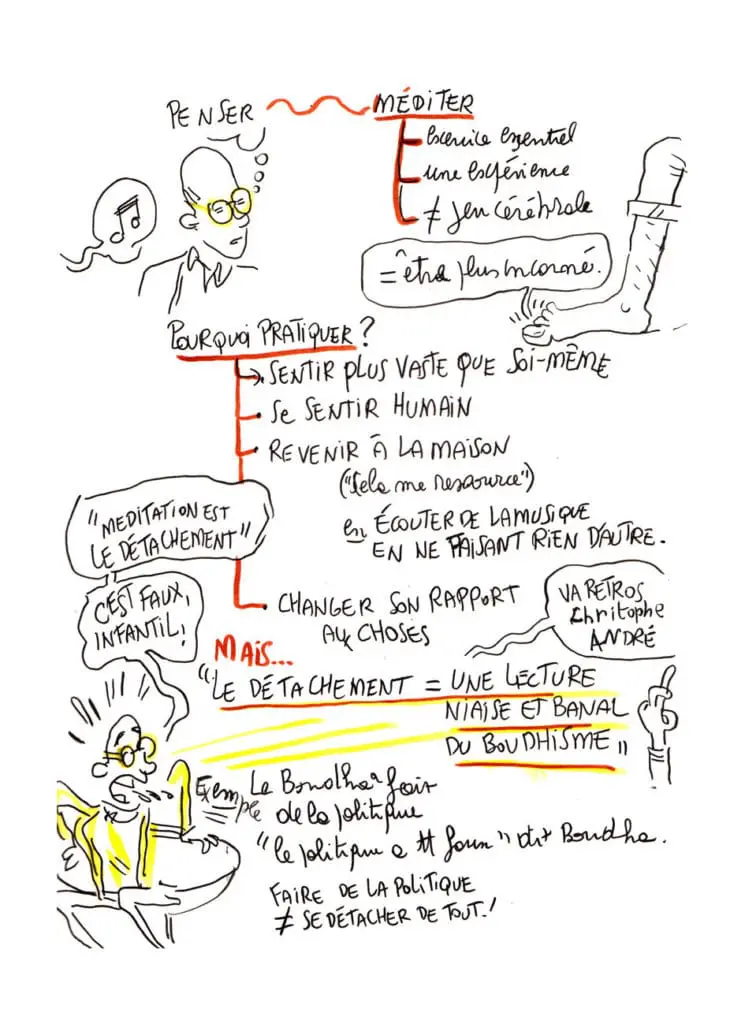 PENSER
MÉDITER
exercice essentiel
une expérience
≠ jeu cérébrale
= être plus incarné.
POURQUOI PRATIQUER ?
SENTIR PLUS VASTE QUE SOI-MÊME
• SE SENTIR HUMAIN
• REVENIR À LA MAISON
("Cela me ressource")
en ÉCOUTER DE LA MUSIQUE
EN NE FAISANT RIEN D'AUTRE.
"MEDITATION EST
LE DÉTACHEMENT"
C'EST FAUX,
INFANTIL!
• CHANGER SON RAPPORT
AUX CHOSES
VA RETROS
Christophe
ANDRÉ
MAIS...
"LE DÉTACHEMENT = UNE LECTURE
NIAISE ET BANAL
DU BOUDHISME"
Exemple Le Boudha fait
de la politique
"le politique a" dit Boudha.
FAIRE DE LA POLITIQUE
≠ SE DÉTACHER DE TOUT!